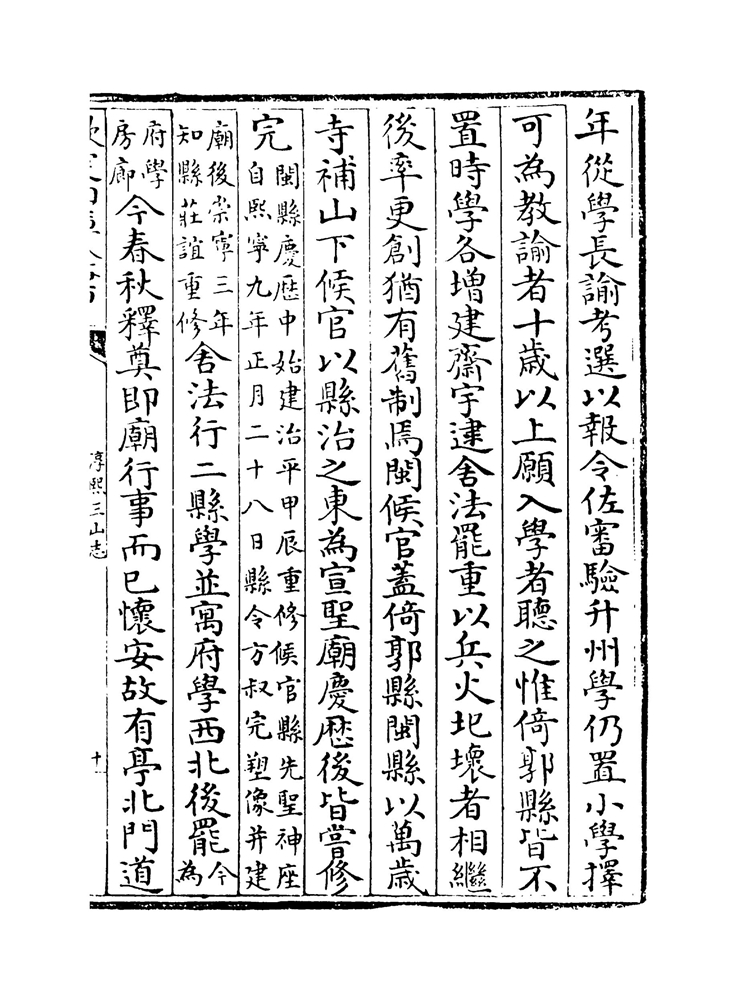 年從學長諭考選以報令佐審驗升州學仍置小學擇
可為教諭者十歲以上願入學者聽之惟倚郭縣皆不
置時學各增建齋宇逮舍法罷重以兵火圮壞者相繼
後率更創猶有舊制焉閩候官蓋倚郭縣閩縣以萬歲
寺補山下候官以縣治之東為宣聖廟慶歷後皆嘗修
完
閩縣慶歷中始建治平甲辰重修候官縣先聖神座
自熙寧九年正月二十八日縣令方叔完塑像并建
廟後崇寧三年
知縣莊誼重修
舍法行二縣學並寓府學西北後罷
今
為
府學
房廊
今春秋釋奠即廟行事而已懷安故有亭北門道
淳熙三山志